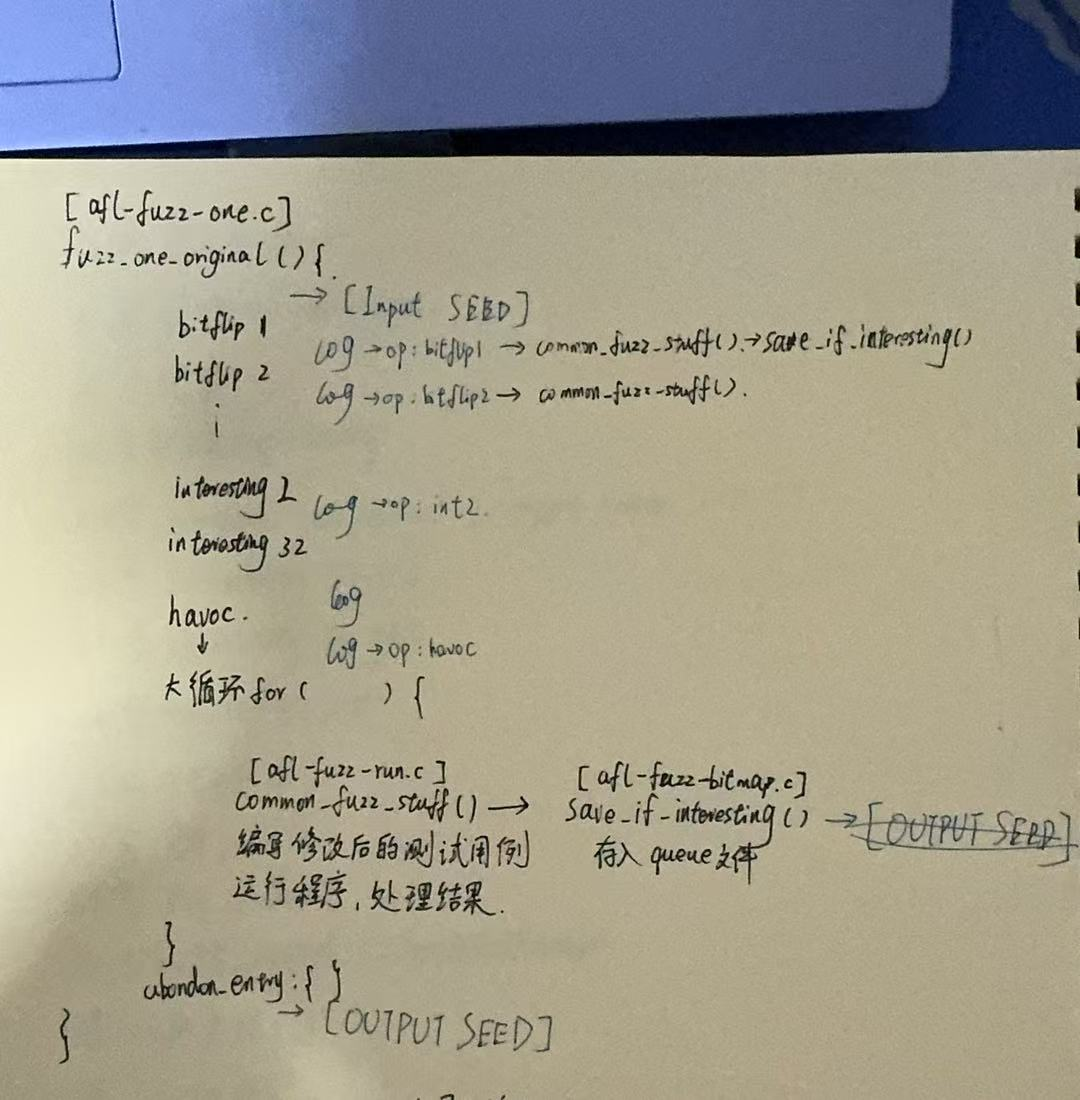 [afl-fuzz-one.c]
fuzz_one_original() {
→ [Input SEED]
bitflip 1 log → op: bitflip1 → common_fuzz_stuff(). → save_if_interesting()
bitflip 2 log → op: bitflip2 → common_fuzz_stuff().
⋮
interesting 2 log → op: int2.
interesting 32
havoc. log
↓ log → op: havoc
大循环 for ( ) {
[afl-fuzz-run.c] [afl-fuzz-bitmap.c]
common_fuzz_stuff() → save_if_interesting() → [OUTPUT SEED]
编写修改后的测试用例 存入 queue文件
运行程序,处理结果.
}
abondon_entry: { }
→ [OUTPUT SEED]
}